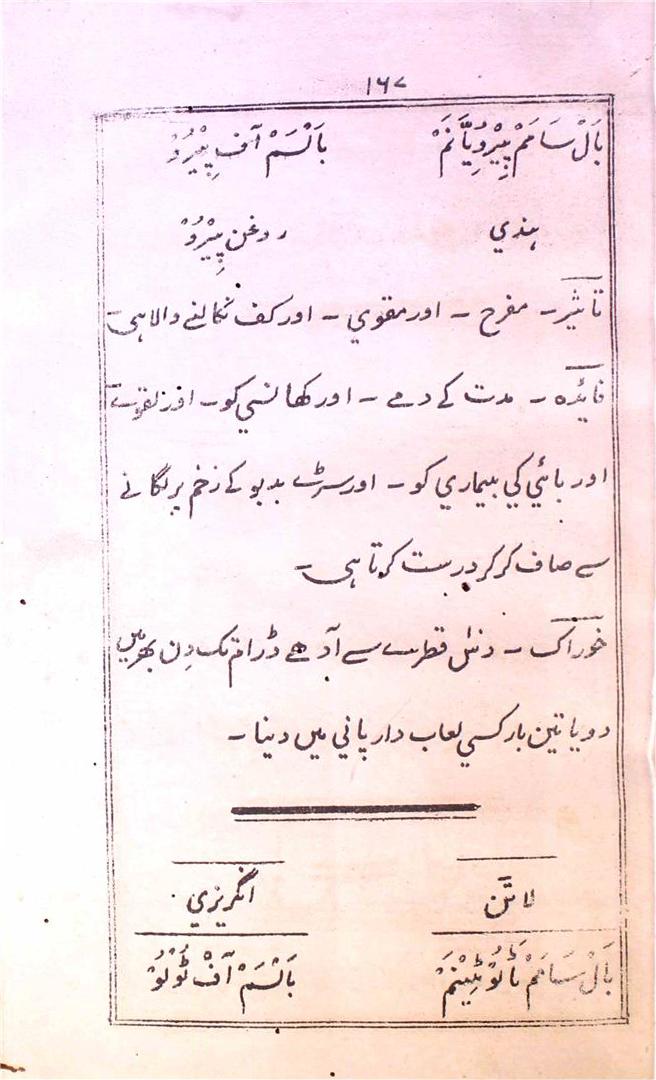 ۱۶۷
بَالْ سَامَمْ پِیْرُوِیَّانَمْ بَالْسَمْ آف پِیْرُوْ
ہندي روغن پِیْرُوْ
تاثیر ۔ مفرح ۔ اور مقوي ۔ اور کف نکالنے والا ہی
فائدہ ۔ مدت کے دمے ۔ اور کھانسي کو ۔ اور لقوے
اور بائي کي بیماري کو ۔ اور سڑے بدبو کے زخم پر لگانے
سے صاف کر کر درست کرتا ہی ۔
خوراک ۔ دس قطرے سے آدھے ڈرام تک دِن بھر میں
دو یا تین بار کسي لعاب دار پاني میں دینا ۔
لاتَن انگریزي
بَالْ سَامَمْ بَالْسَمْ آفْ ٹُوْلُوْ